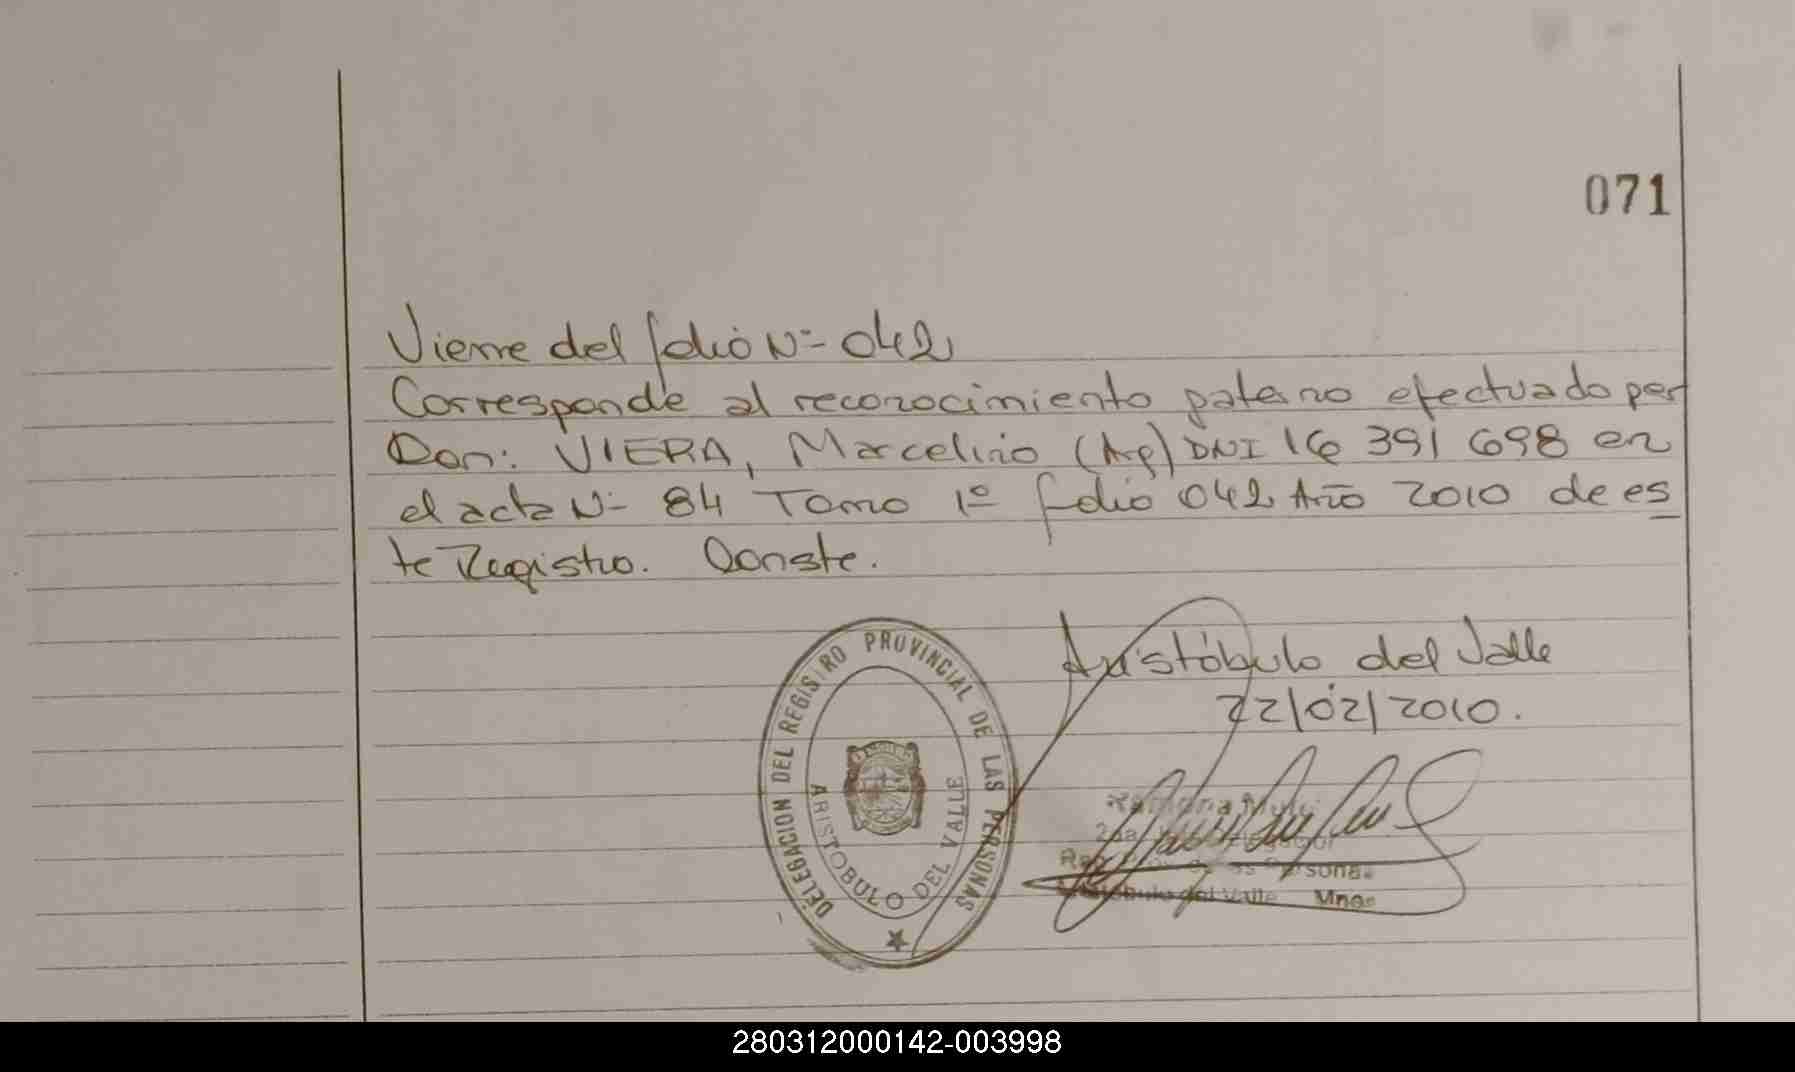 071
Viene del folio Nº 042
Corresponde al reconocimiento paterno efectuado por
Don: VIERA, Marcelino (Arg) DNI 16 391 698 en
el acta Nº 84 Tomo 1º folio 042 Año 2010 de es
te Registro. Conste.
Aristóbulo del Valle
22/02/2010.
DELEGACION DEL REGISTRO PROVINCIAL DE LAS PERSONAS
ARISTOBULO DEL VALLE
Ramona
Personas
del Valle Mnes
280312000142-003998